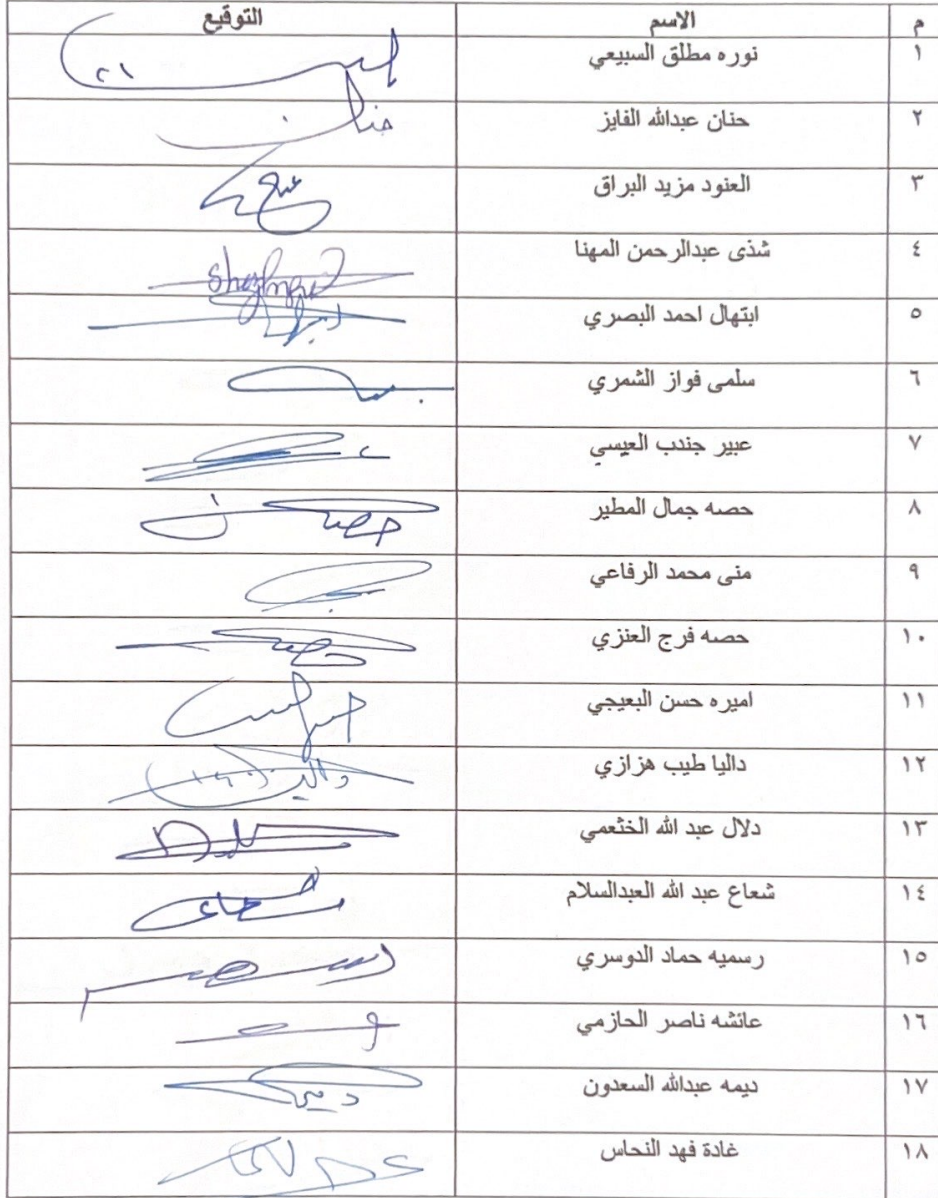 م الاسم التوقيع
١ نوره مطلق السبيعي
٢ حنان عبدالله الفايز حنان
٣ العنود مزيد البراق
٤ شذى عبدالرحمن المهنا
٥ ابتهال احمد البصري
٦ سلمى فواز الشمري
٧ عبير جندب العيسي
٨ حصه جمال المطير حصه
٩ منى محمد الرفاعي
١٠ حصه فرج العنزي حصه
١١ اميره حسن البعيجي
١٢ داليا طيب هزازي داليا
١٣ دلال عبد الله الخثعمي
١٤ شعاع عبد الله العبدالسلام شعاع
١٥ رسميه حماد الدوسري
١٦ عائشه ناصر الحازمي
١٧ ديمه عبدالله السعدون ديمه
١٨ غادة فهد النحاس